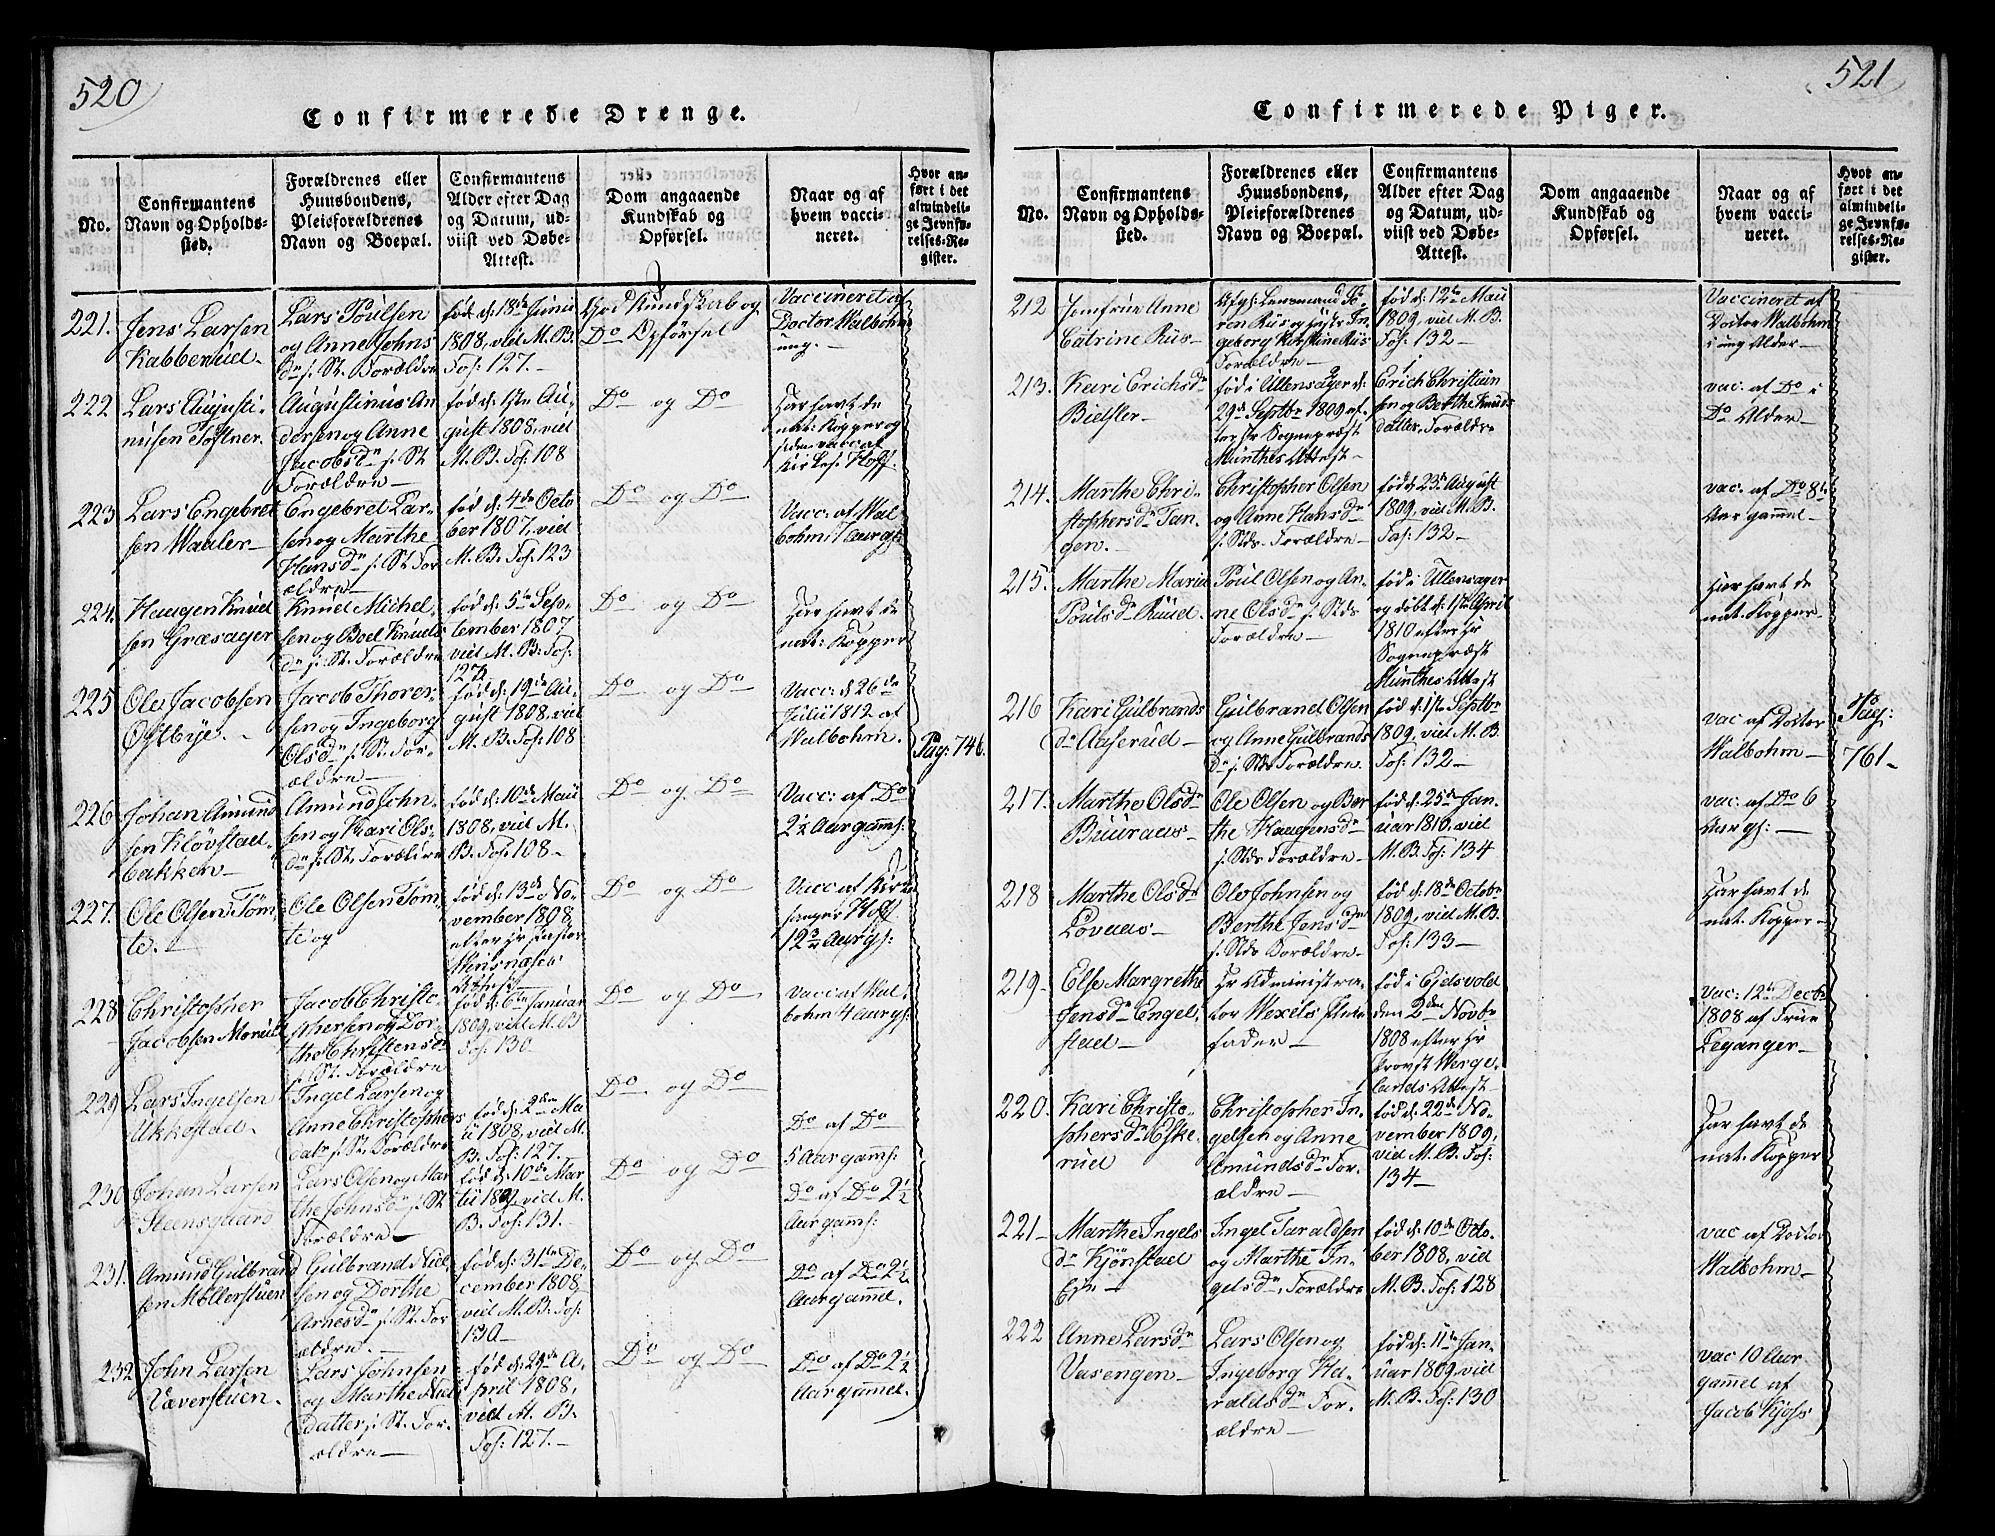 520
Confirmerede Drenge.
No.
Confirmantens
Navn og Opholds-
sted.
Forældrenes eller
Huusbondens,
Pleieforældrenes
Navn og Boepæl.
Confirmantens
Alder efter Dag
og Datum, ud-
viist ved Døbe-
Attest.
Dom angaaende
Kundskab og
Opførsel.
Naar og af
hvem vacci-
neret.
Hvor an-
ført i det
almindeli-
ge Jevnfø-
relses-Re-
gister.
221.
Jens Larsen
Kabberud.
Lars Poulsen
og Anne Johns
dr s. St. Forældre
fød d: 18de Junii
1808, vid M. B.
Fol: 127.
God Kundskab og
Do Opførsel
Vaccineret af
Doctor Walbohm
ung.
222
Lars Augusti-
nusen Tostner.
Augustinus An
dersen og Anne
Jacobsdr s. St.
Forældre
fød d: 1ste Au-
gust 1808, vid
M. B. Fol: 108
Do og Do
Har havt de
nat: Kopper og
siden vacc. af
Kirkes. Hoff.
223
Lars Engebret
sen Waaler
Engebret Lar-
sen og Marthe
Hansdr s. St. For
ældre
fød d: 4de Octo
ber 1807, vid
M. B. Fol: 123
Do og Do
Vacc: af Wal
bohm 7 Aar gl:
224.
Haagen Knud
sen Græsager
Knud Michel-
sen og Boel Knuds
dr s. St. Forældre
fød d: 5te Sep-
tember 1807
vid M. B. Fol:
127
Do og Do
Har havt de
nat: Kopper
225
Ole Jacobsen
Østbye.
Jacob Thorer-
sen og Ingeborg
Olsdr s. St. For-
ældre
fød d: 19de Au-
gust 1808, vid
M. B. Fol: 108
Do og Do
Vacc: d 26de
Julii 1812 af
Walbohm.
Pag: 746.
226
Johan Amund
sen Kløvstad
bakken
Amund John-
sen og Kari Ols-
dr s. St. Forældre
fød d: 10de Maii
1808, vid M.
B. Fol: 108
Do og Do
Vacc: af Do
2½ Aar gaml:
227.
Ole Olsen Tøm
te.
Ole Olsen Tøm-
te og
fød d: 13de No-
vember 1808
efter Hr Pastor
Do og Do
Vacc af Kirke
sanger Hoff
12¾ Aar gl:
228
Christopher
Jacobsen Morud
Jacob Christo-
phersen og Dor-
the Christensdr
s. St. Forældre
fød d: 6te Januar
1809, vid M. B
Fol: 130
Do og Do
Vacc af Wal-
bohm 4 Aar gl:
229
Lars Ingelsen
Ukkestad.
Ingel Larsen og
Anne Christophers
datr s. St. Forældre
fød d: 2den Ma
ii 1808, vid M.
B. Fol: 127.
Do og Do
Do af Do
5 Aar gaml:
230
Johan Larsen
Steensgaard
Lars Olsen og Mar
the Johnsdr s. St
Forældre
fød d: 10de Mar
tii 1809, vid M.
B. Fol: 131.
Do og Do
Do af Do 2½
Aar gaml:
231.
Amund Gulbrand
sen Møllerstuen
Gulbrand Niel-
sen og Dorthe
Arnesdr s. St. For
ældre.
fød d: 31te De-
cember 1808
vid M. B. Fol:
130
Do og Do
Do af Do 2½
Aar gammel.
232
John Larsen
Væverstuen.
Lars Johnsen
og Marthe Niels
datter s. St. For-
ældre
fød d: 29de A-
pril 1808,
vid M. B.
Fol: 127.
Do og Do
Do af Do 2½
Aar gammel.
521
Confirmerede Piger.
No.
Confirmantens
Navn og Opholds-
sted.
Forældrenes eller
Huusbondens,
Pleieforældrenes
Navn og Boepæl.
Confirmantens
Alder efter Dag
og Datum, ud-
viist ved Døbe-
Attest.
Dom angaaende
Kundskab og
Opførsel.
Naar og af
hvem vacci-
neret.
Hvor an-
ført i det
almindeli-
ge Jevnfø-
relses-Re-
gister.
212
Jomfrue Anne
Catrine Rus
Afg: Lensmand Sö-
ren Rus og Hustr In-
geborg Kirstine Rus
Forældre
fød d: 12te Maii
1809, vid M. B.
Fol: 132
Vaccineret af
Doctor Walbohm
i ung Alder
213.
Kari Erichsdr
Biesler
fød i Ullensager d:
29de Septbr 1809 ef-
ter Hr Sognepræst
Munthes Attest
Erich Christian
sen og Berthe Knuds
datter, Forældre
vac. af Do i
Do Alder
214.
Marthe Chri-
stophersdr Tan-
gen.
Christopher Olsen
og Anne Hansdr
s. Stds. Forældre
fød d 23de August
1809, vid M. B.
Fol: 132
vac: af Do 8
Aar gammel
215.
Marthe Maria
Poulsdr Ruud.
Poul Olsen og An-
ne Olsdr s. Stds
Forældre
fød i Ullensager
og døbt d: 1ste April
1810 efter Hr
Sognepræst
Munthes Attest
Har havt de
nat. Kopper
216
Kari Gulbrands
dr Aaserud
Gulbrand Olsen
og Anne Gulbrands
dr s. Stds Forældre
fød d: 1ste Septbr
1809, vid M. B
Fol: 132
vac af Doctor
Walbohm
Pag:
761
217.
Marthe Olsdr
Buuraas
Ole Olsen og Ber
the Haagensdr
s. Stds Forældre
fød d: 25de Jan-
uar 1810, vid
M. B. Fol: 134
vac. af Do 6
Aar gl:
218
Marthe Olsdr
Lovaas
Ole Johnsen og
Berthe Jensdr
s. Stds Forældre
fød d: 18de Octobr
1809, vid M. B.
Fol: 133
Har havt de
nat. Kopper
219
Else Margrethe
Jensdr Engel-
stad
Hr Administra-
tor Wexels Pleie
fader
fød i Eidsvold
den 2den Novbr
1808 efter Hr
Provst Werge-
lands Attest
Vac: 12te Decbr
1808 af Frue
Leganger
220.
Kari Christo-
phersdr Eske-
rud
Christopher In-
gelsen og Anne
Amundsdr For-
ældre
fød d: 22de No-
vember 1809,
vid M. B. Fol:
134
Har havt de
nat. Kopper
221
Marthe Ingels
dr Kjønstad
Eje
Ingel Taraldsen
og Marthe In-
gelsdr, Forældre
fød d: 10de Octo-
ber 1808, vid
M. B. Fol: 128
vac af Doctor
Walbohm
222
Anne Larsdr
Vasengen
Lars Olsen og
Ingeborg Ha-
raldsdr For-
ældre
fød d: 11te Jan-
uar 1809, vid
M. B. Fol: 130
vac 10 Aar
gammel af
Jacob Kjøss